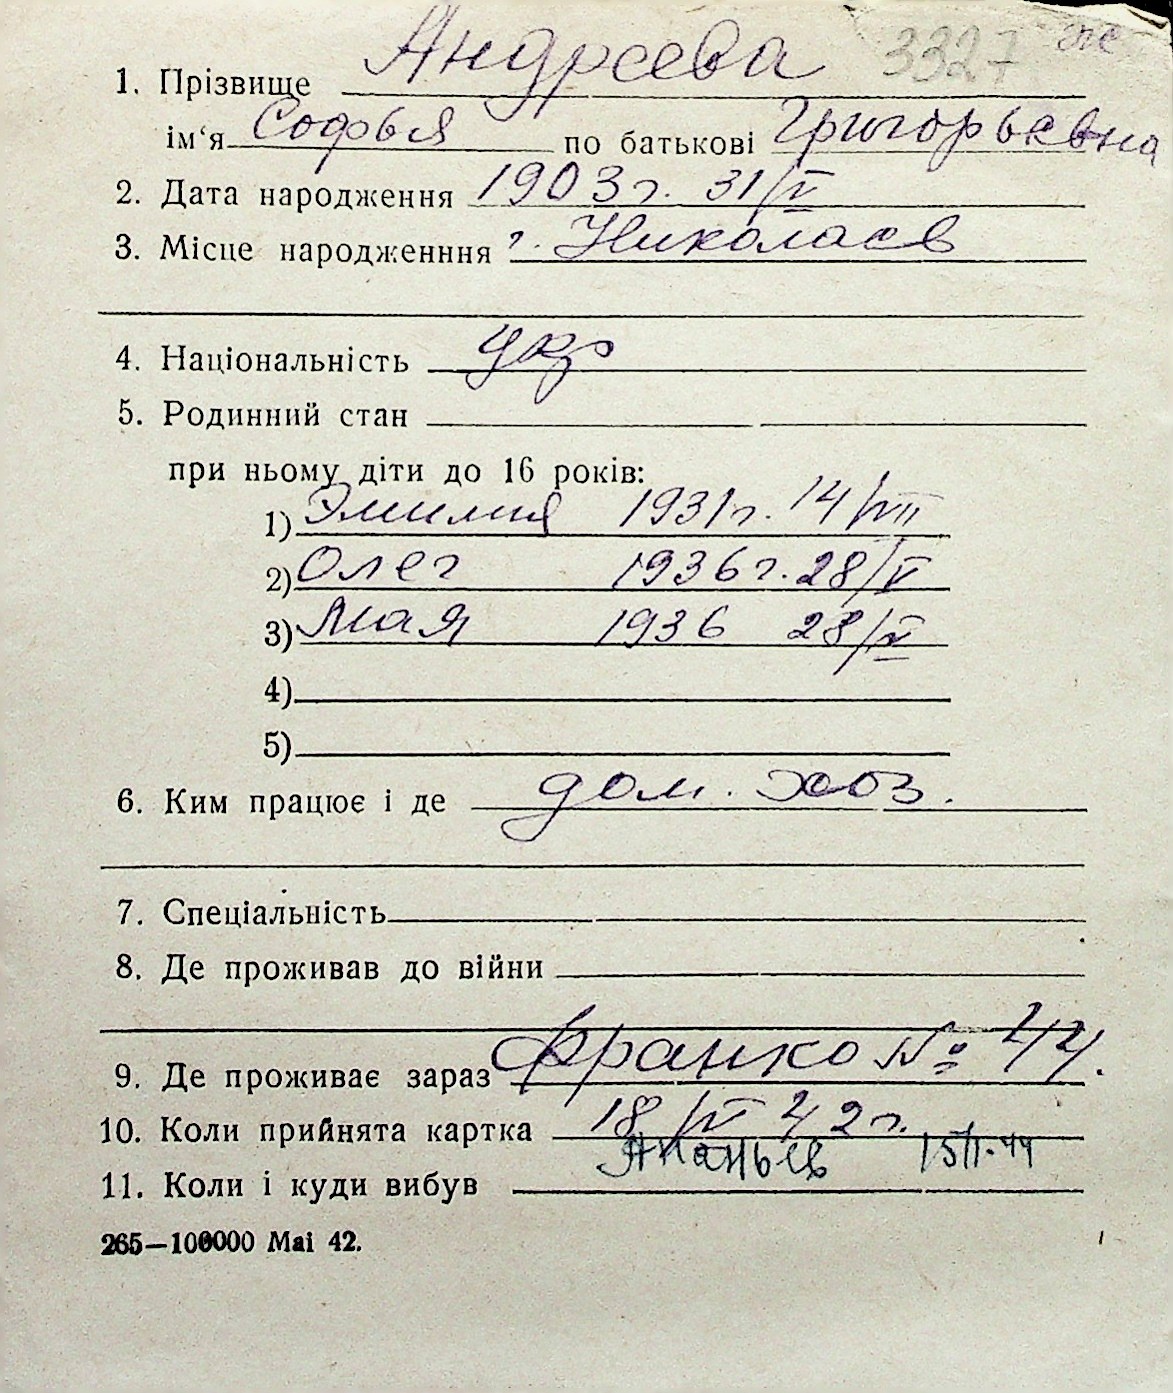 3327 же
1. Прізвище Андреева
ім‘я Софья по батькові Григорьевна
2. Дата народження 1903 г. 31/V
3. Місце народженння г. Николаев
4. Національність укр
5. Родинний стан
при ньому діти до 16 років:
1) Эмилия 1931 г. 14/VII
2) Олег 1936 г. 28/V
3) Мая 1936 28/V
4)
5)
6. Ким працює і де дом. хоз.
7. Спеціальність
8. Де проживав до війни
9. Де проживає зараз Франко № 44.
10. Коли прийнята картка 18/IV 42 г.
11. Коли і куди вибув Ананьев 15/II-44
265—100000 Mai 42.